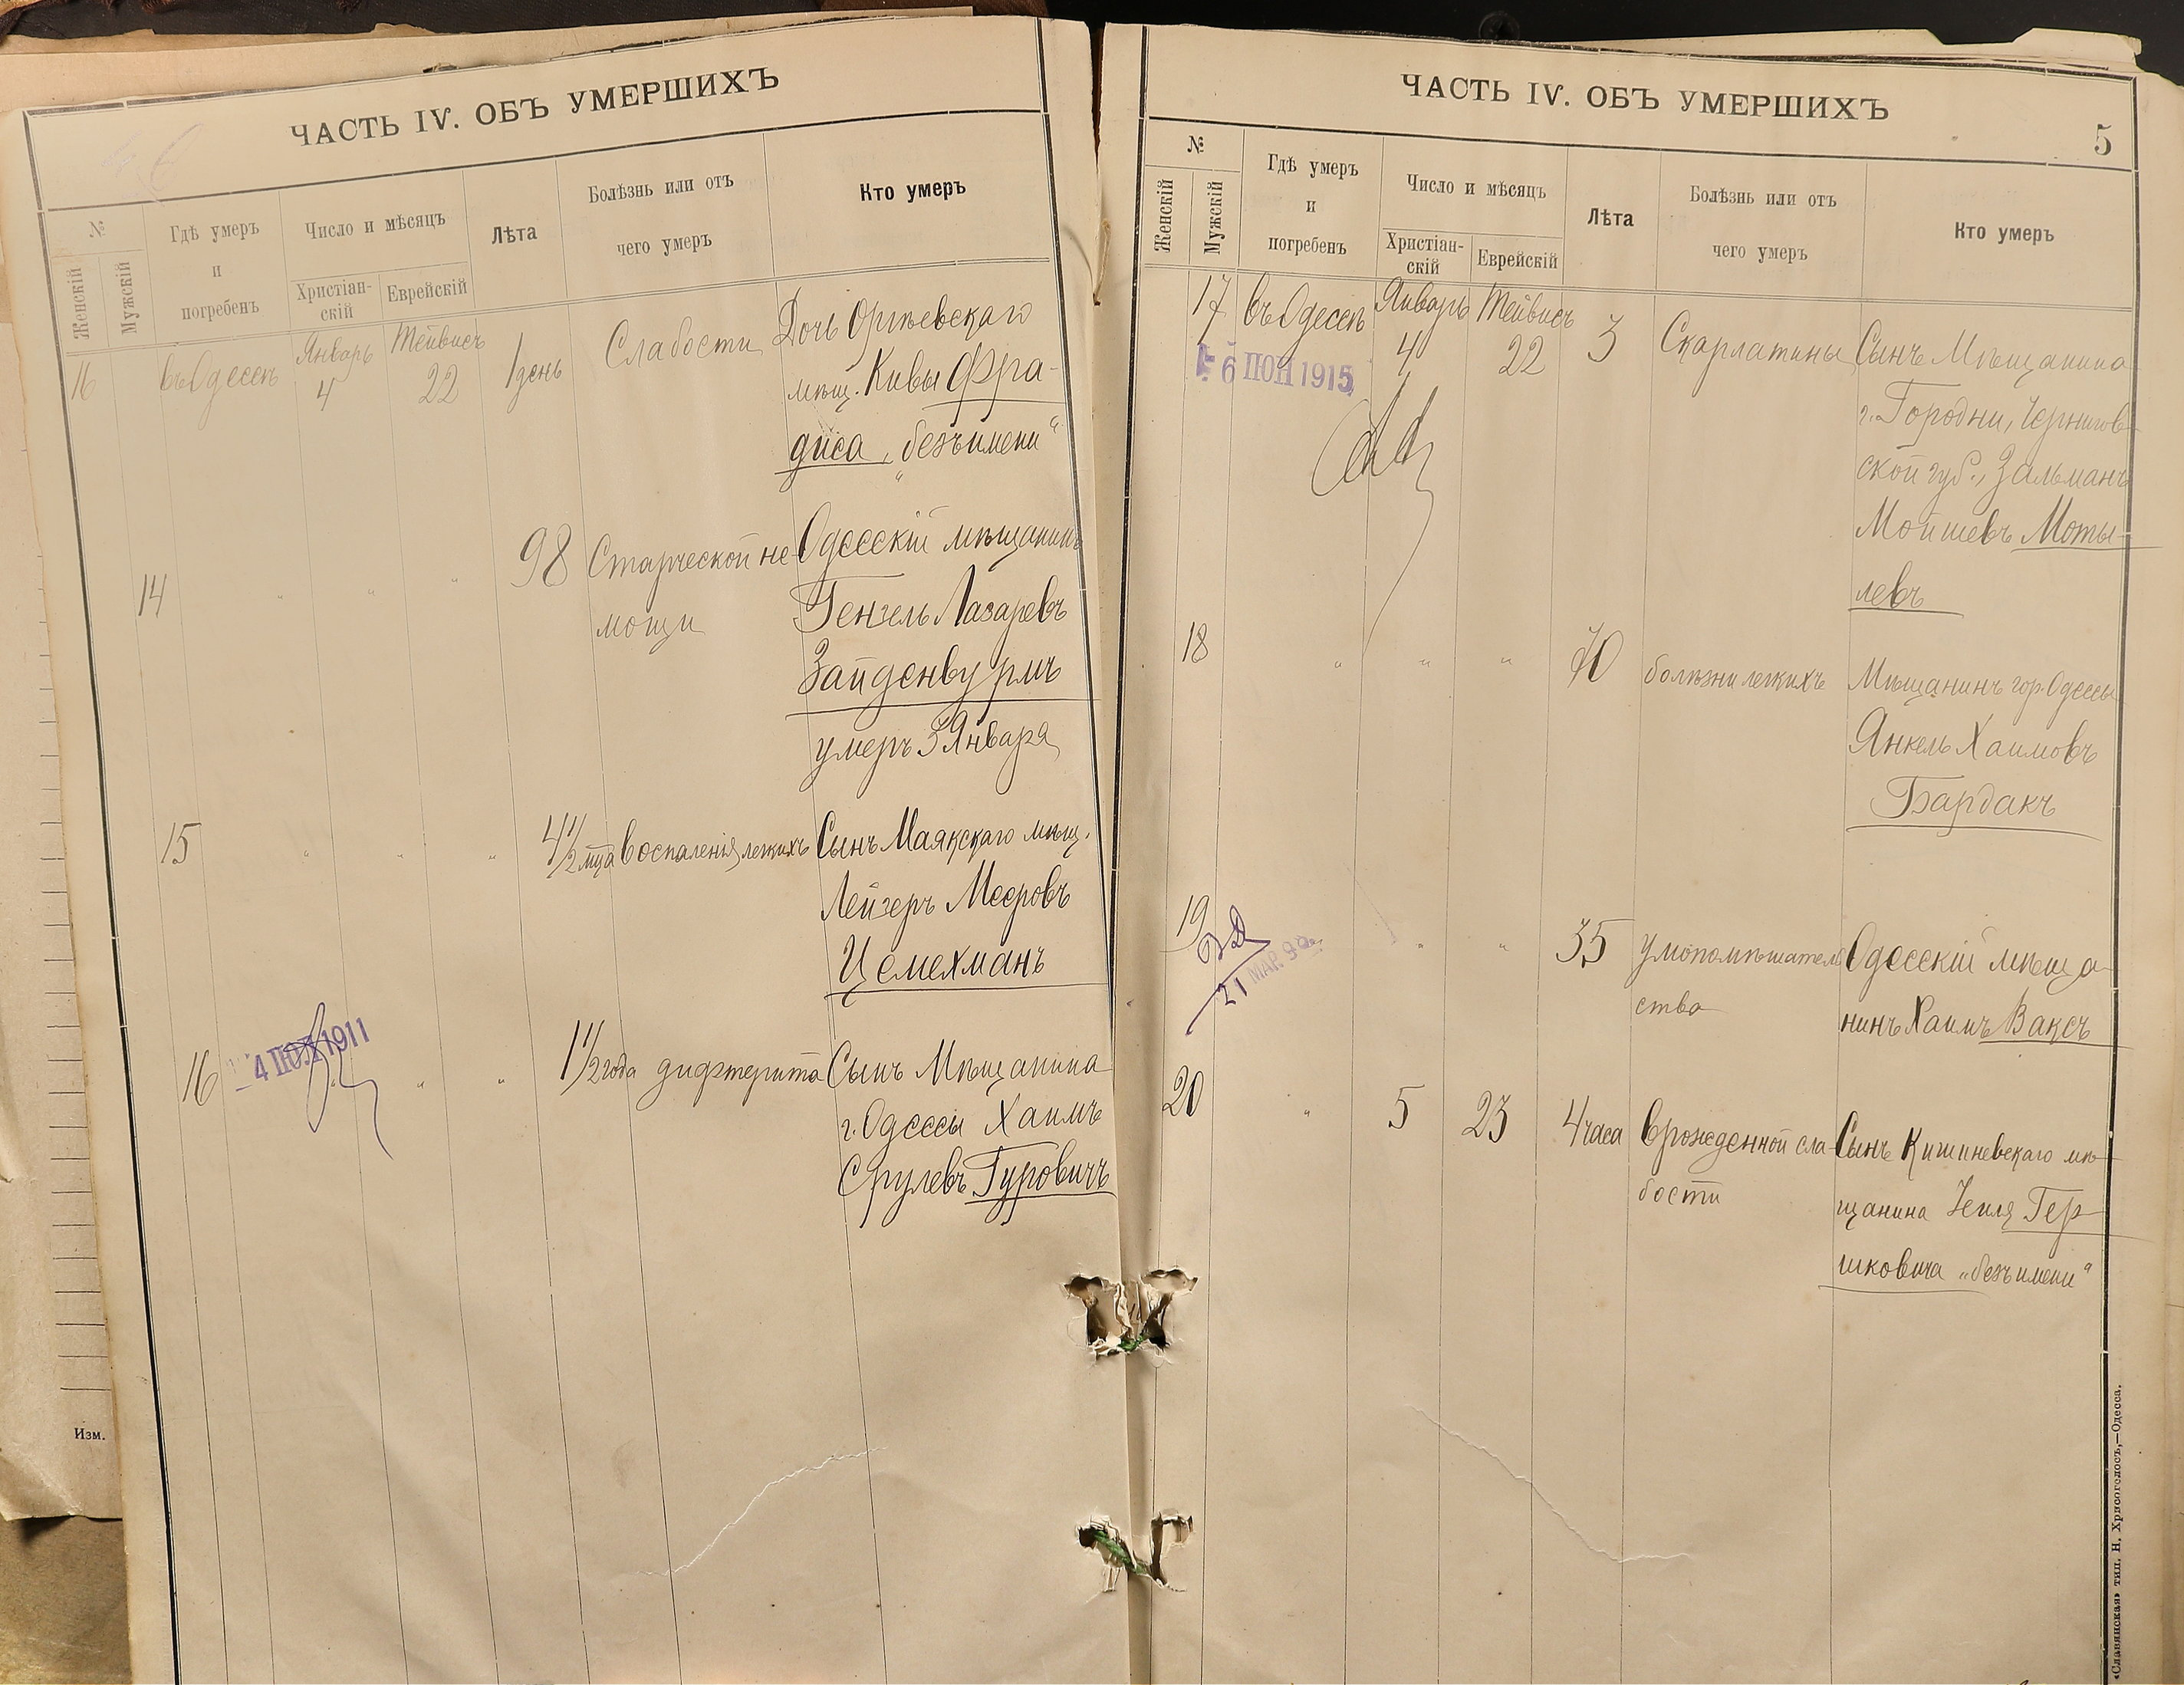 ЧАСТЬ IV. ОБЪ УМЕРШИХЪ
№
Женскій
Мужскій
Гдѣ умеръ
и
погребенъ
Число и мѣсяцъ
Христіан-
скій
Еврейскій
Лѣта
Болѣзнь или отъ
чего умеръ
Кто умеръ
16 въ Одессѣ Январь 4 Тейвисъ 22 1 день Слабости Дочь Оргѣевскаго
мѣщ. Кивы Фра-
диса, „безъ имени“
14 " " " 98 Старческой не- Одесскій мѣщанинъ
мощи Генzель Лазаревъ
Зайденвурмъ
умеръ 3 Января
15 " " " 4 1/2 мца воспаленія легкихъ Сынъ Маякскаго мѣщ.
Лейзеръ Мееровъ
Цемехманъ
16 4 ІЮЛ 1911 " " " 1 1/2 года дифтерита Сынъ Мѣщанина
г. Одессы Хаимъ
Срулевъ Гуровичъ
Изм.
ЧАСТЬ IV. ОБЪ УМЕРШИХЪ
5
№
Женскій
Мужскій
Гдѣ умеръ
и
погребенъ
Число и мѣсяцъ
Христіан-
скій
Еврейскій
Лѣта
Болѣзнь или отъ
чего умеръ
Кто умеръ
17 въ Одессѣ Январь 4 Тейвисъ 22 3 Скарлатины Сынъ Мѣщанина
6 ІЮН 1915
г. Городни, Чернигов-
ской губ., Зальманъ
Мойшевъ Моты-
левъ
18 " " " 70 болѣзни легкихъ Мѣщанинъ гор. Одессы
Янкель Хаимовъ
Бардакъ
19 " " 35 умопомѣшатель Одесскій мѣща-
21 МАР. 99
ства нинъ Хаимъ Ваксъ
20 " 5 23 4 часа врожденной сла- Сынъ Кишиневскаго мѣ-
бости щанина Хепля Гер-
шковича „безъ имени“
«Славянская» тип. Н. Хрисогелосъ,—Одесса.